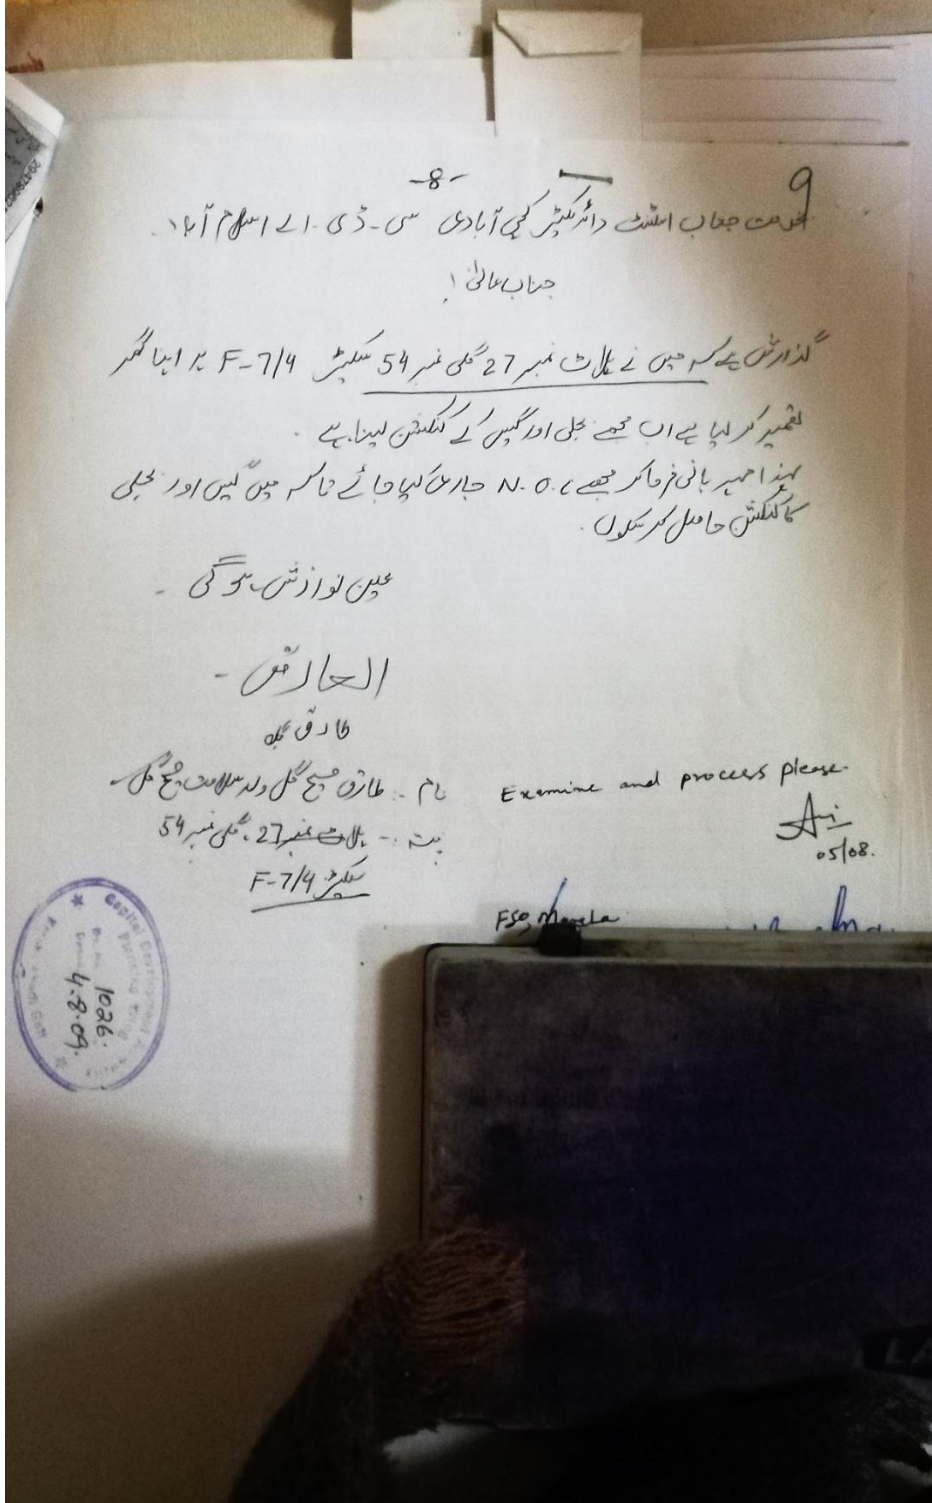 -8-
9
بخدمت جناب اسسٹنٹ ڈائریکٹر کچی آبادی سی۔ڈی۔اے اسلام آباد
جناب عالیٰ !
گذارش ہے کہ میں نے پلاٹ نمبر 27 گلی نمبر 54 سیکٹر F-7/4 پر اپنا گھر
تعمیر کر لیا ہے اب مجھے بجلی اور گیس کے کنکشن لینا ہے ۔
لہذا مہربانی فرما کر مجھے N.O.C جاری کیا جائے تاکہ میں گیس اور بجلی
کا کنکشن حاصل کر سکوں ۔
عین نوازش ہوگی ۔
العارض ۔
طارق گل
نام :- طارق مسیح گل ولد سلامت مسیح گل
پتہ :- پلاٹ نمبر 27 ، گلی نمبر 54
سیکٹر F-7/4
Examine and process please.
05/08.
FSO,
Capital Development
Planning Wing
1026.
4-8-09.